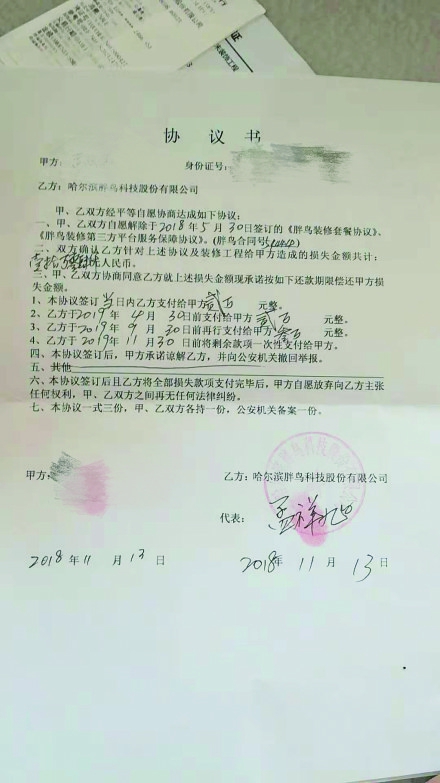 协 议 书
甲方: 身份证号:
乙方:哈尔滨胖鸟科技股份有限公司
甲、乙双方经平等自愿协商达成如下协议:
一、甲、乙双方自愿解除于2018年5月30日签订的《胖鸟装修套餐协议》、
《胖鸟装修第三方平台服务保障协议》。(胖鸟合同号
二、双方确认乙方针对上述协议及装修工程给甲方造成的损失金额共计:
人民币。
三、甲、乙双方协商同意乙方就上述损失金额现承诺按如下还款期限偿还甲方损
失金额。
1、本协议签订当日内乙方支付给甲方贰万元整。
2、乙方于2019年4月30日前支付给甲方贰万元整。
3、乙方于2019年9月30日前再行支付给甲方 元整。
4、乙方于2019年11月30日前将剩余款项一次性支付给甲方。
四、本协议签订后,甲方承诺谅解乙方,并向公安机关撤回举报。
五、其他
六、本协议签订后且乙方将全部损失款项支付完毕后,甲方自愿放弃向乙方主张
任何权利,甲、乙双方之间再无任何法律纠纷。
七、本协议一式三份,甲、乙双方各持一份,公安机关备案一份。
甲方: 乙方:哈尔滨胖鸟科技股份有限公司
代表:
2018年11月13日 2018年11月13日